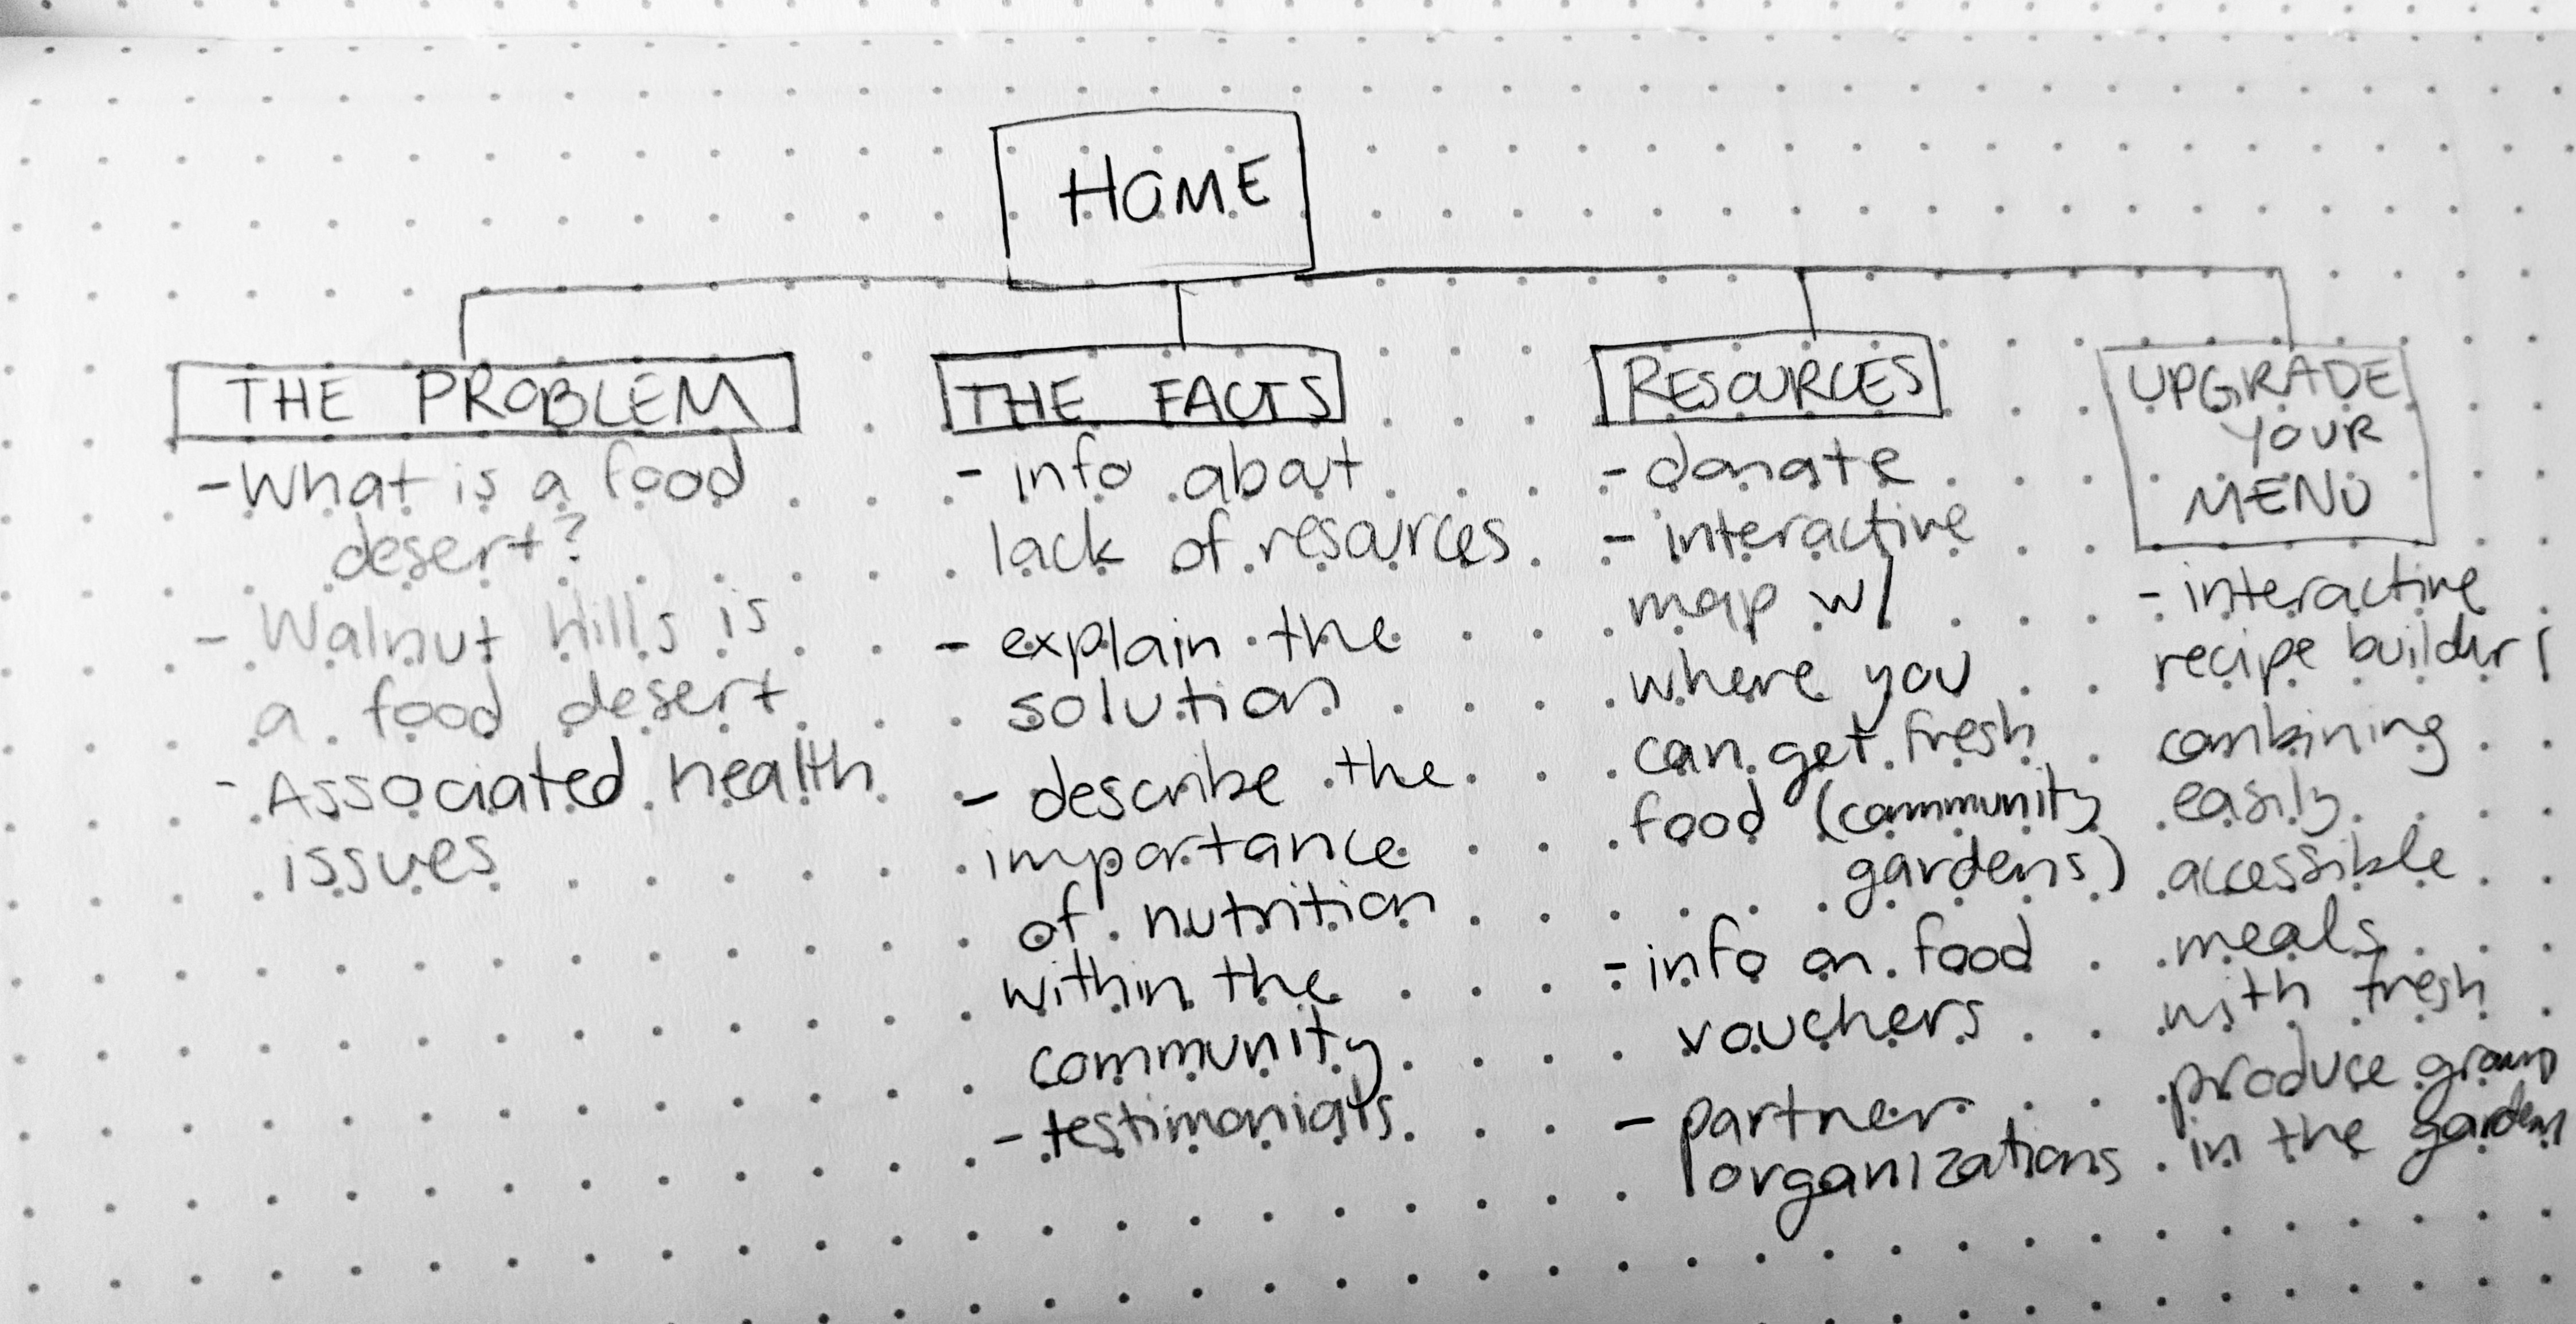 HOME
THE PROBLEM
- What is a food
desert?
- Walnut Hills is
a food desert
- Associated health
issues
THE FACTS
- info about
lack of resources
- explain the
solution
- describe the
importance
of nutrition
within the
community
- testimonials
RESOURCES
- donate
- interactive
map w/
where you
can get fresh
food (community
gardens)
- info on food
vouchers
- partner
organizations
UPGRADE
YOUR
MENU
- interactive
recipe builder
combining
easily
accessible
meals
with fresh
produce grown
in the garden